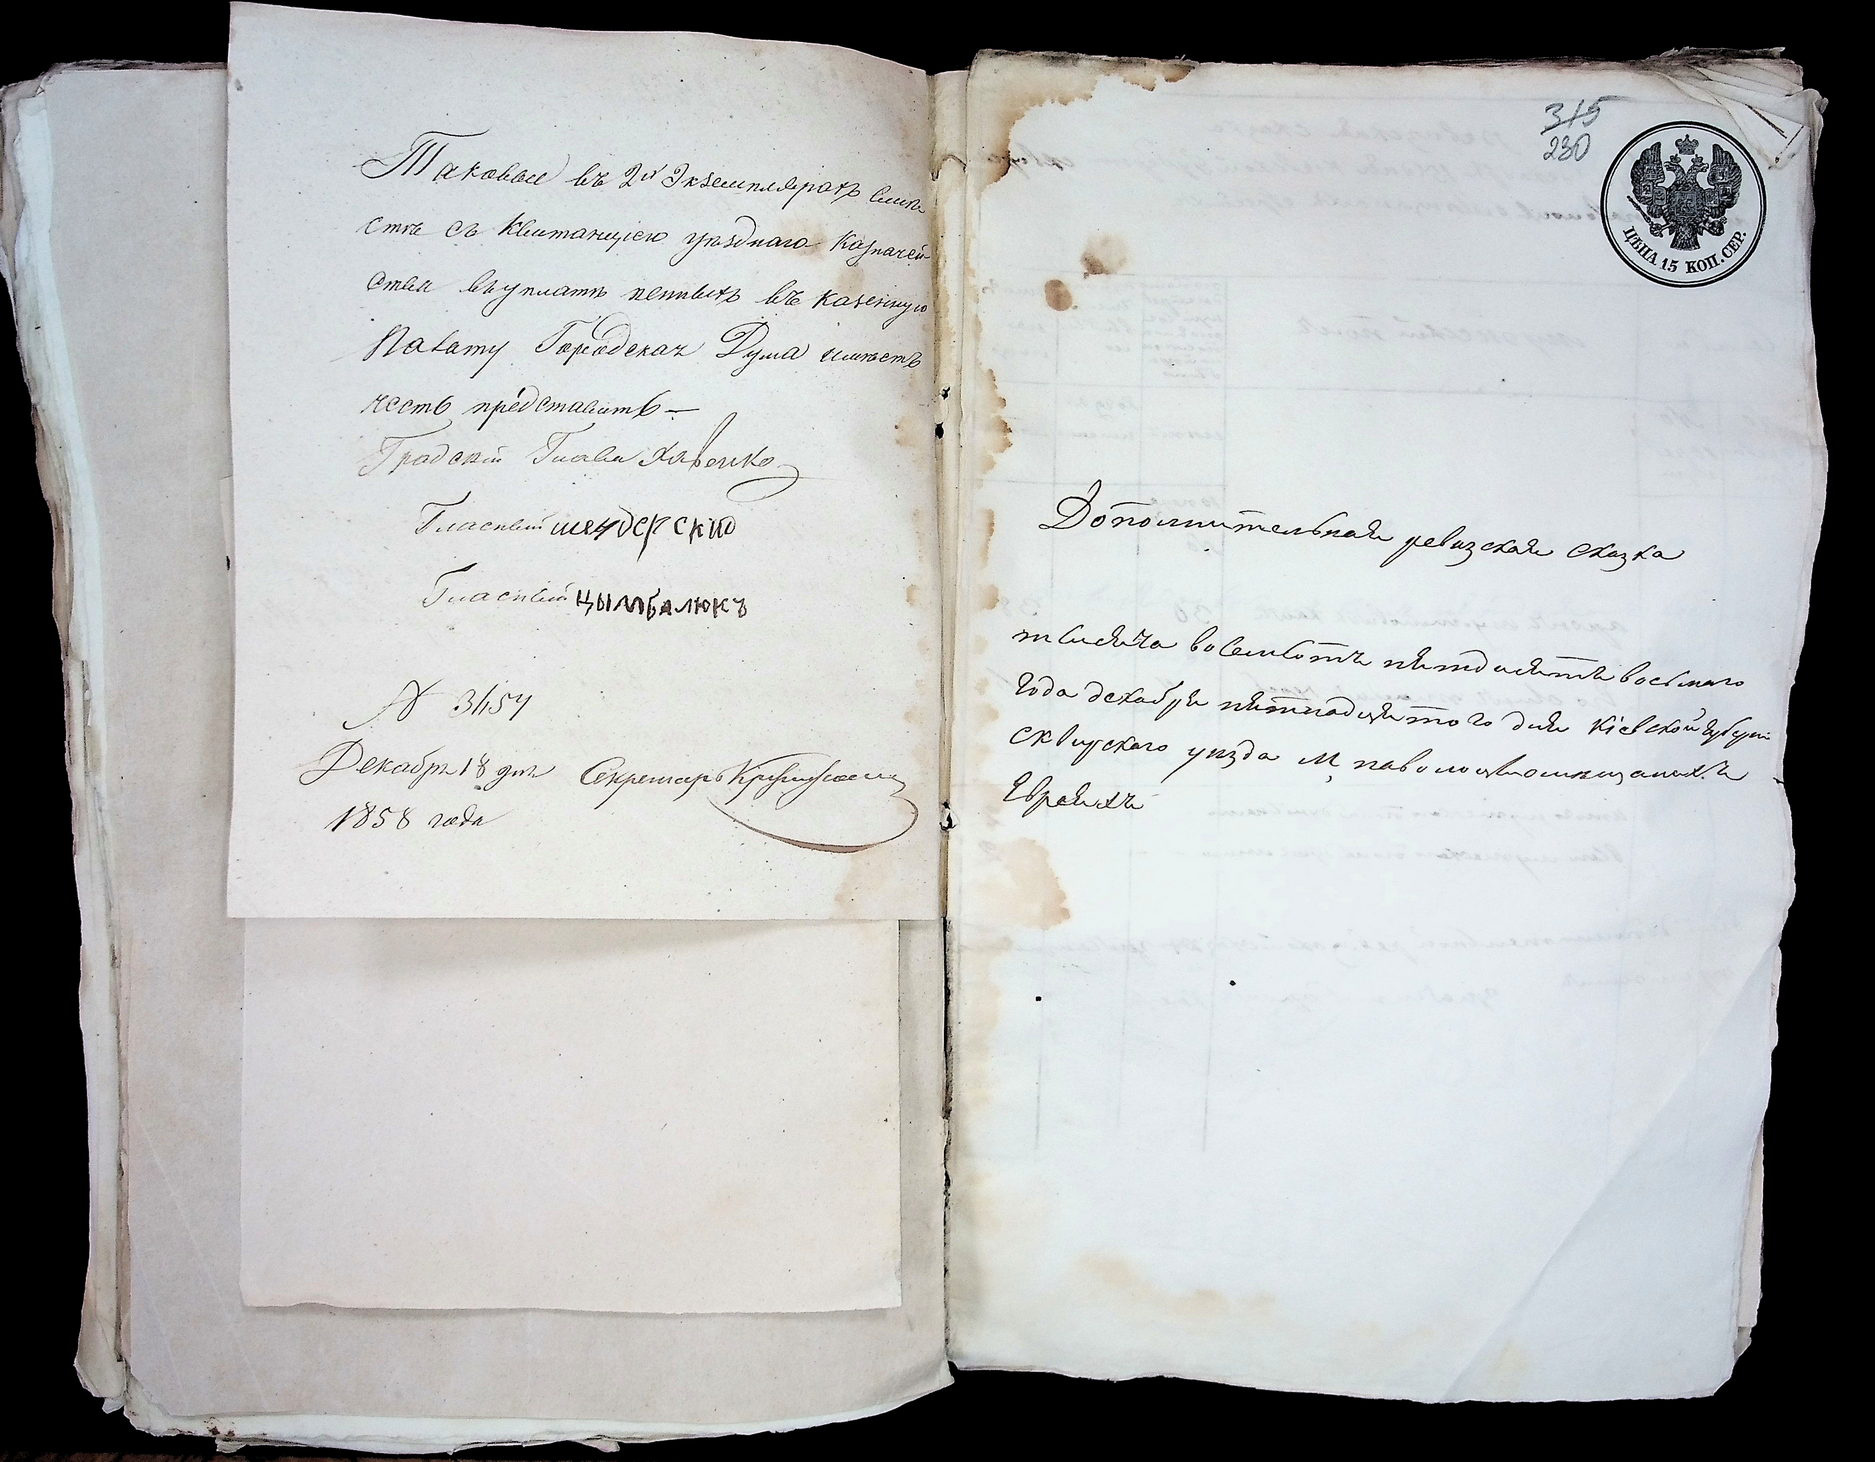 Таковые въ 2хъ Экземплярахъ вмѣ
стѣ съ Квитанціею уѣзднаго Казначей
ства въ уплатѣ пенныхъ въ Казенную
Палату Городская Дума имѣетъ
честь представить —
Градскій Глава
Гласный шендерскій
Гласный цымбалюкъ
N 3457
Декабря 18 дня Секретарь
1858 года
315
230
ЦѢНА 15 КОП. СЕР.
Дополнительная ревизская сказка
тысяча восемьсотъ пятьдесятъ восьмаго
года декабря пятнадцатого дня Кіевской губерніи
сквирского уѣзда м. паволочи о мѣщанахъ
Евреяхъ